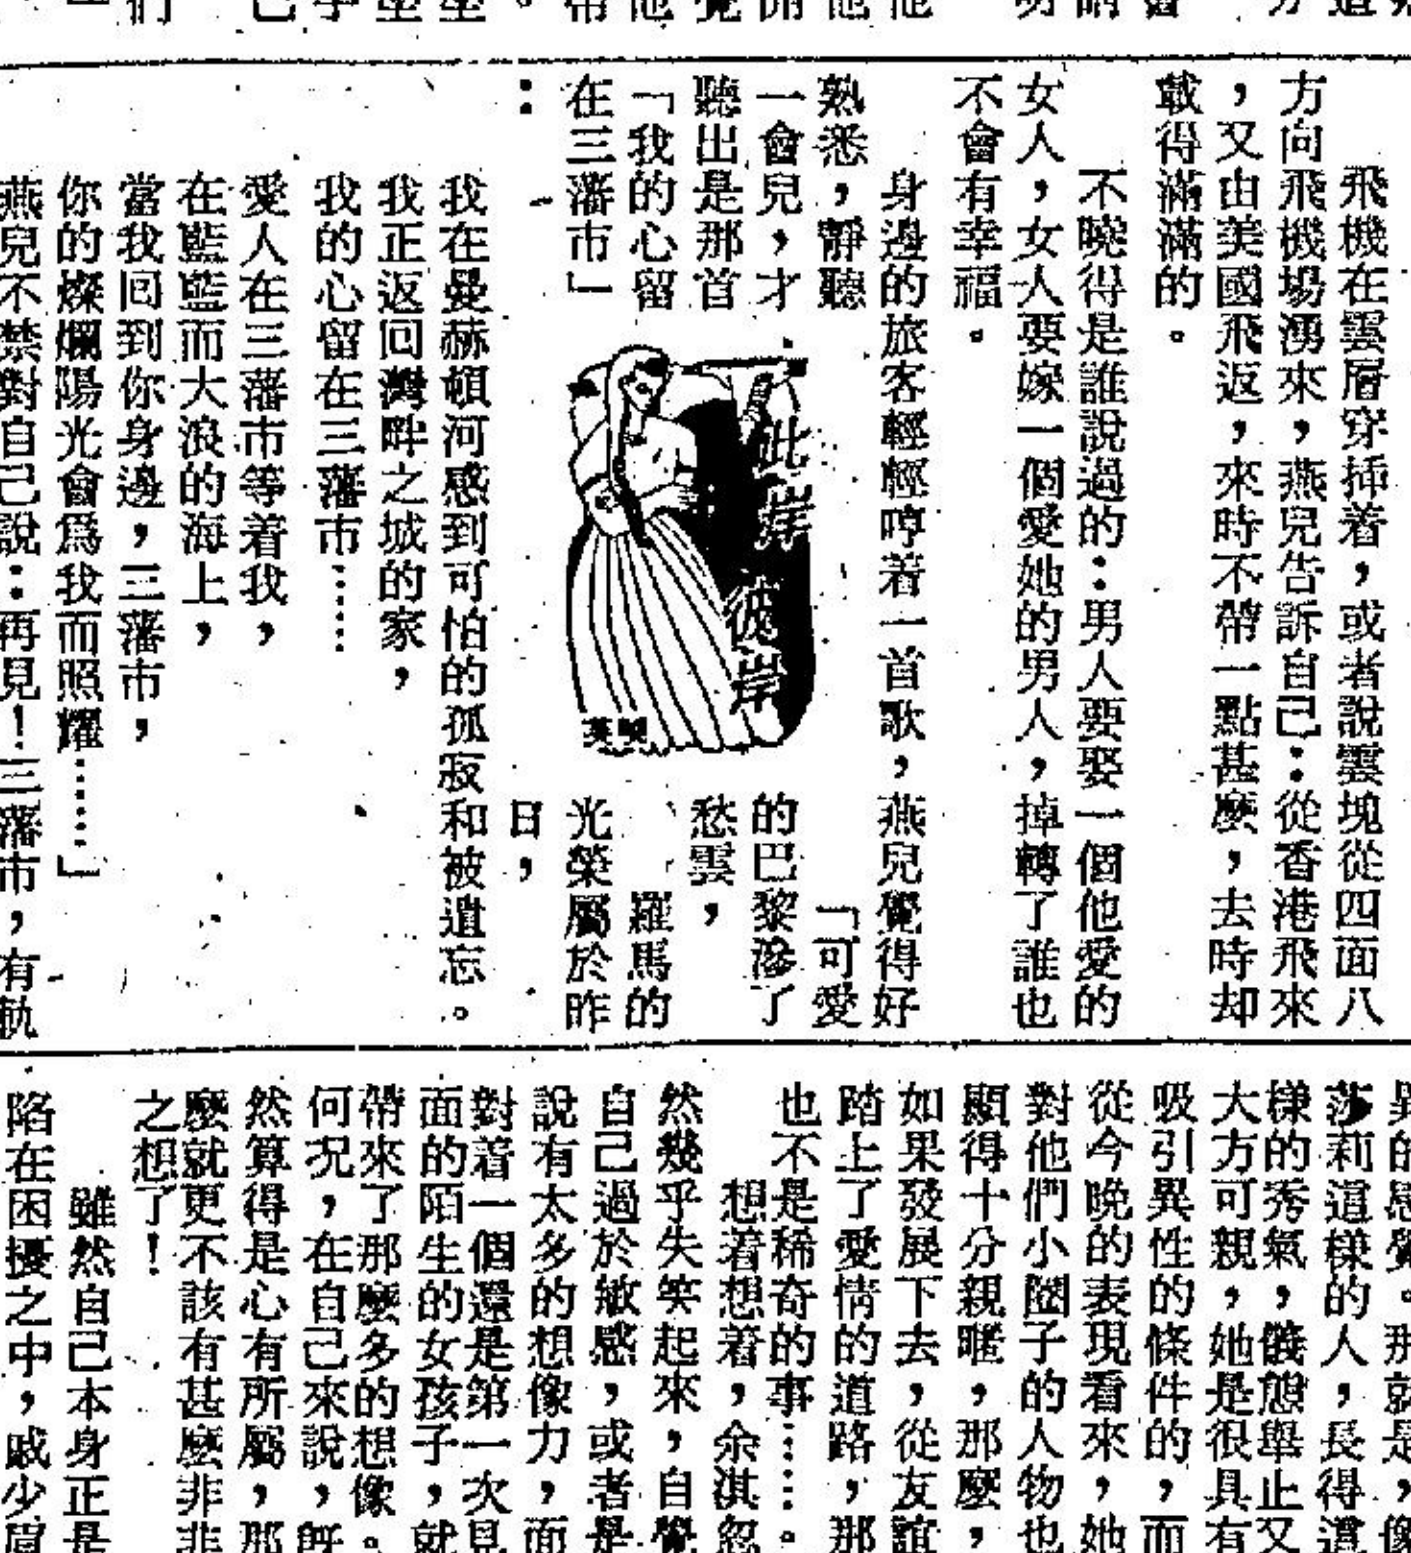 飛機在雲層穿挿着，或者說雲塊從四面八
方向飛機場湧來，燕兒告訴自己：從香港飛來
，又由美國飛返，來時不帶一點甚麼，去時却
載得滿滿的。
不曉得是誰說過的：男人要娶一個他愛的
女人，女人要嫁一個愛她的男人，掉轉了誰也
不會有幸福。
身邊的旅客輕輕哼着一首歌，燕兒覺得好
熟悉，靜聽
一會兒，才
聽出是那首
「我的心留
在三藩市」
：
此岸
彼岸
「可愛
的巴黎滲了
愁雲，
羅馬的
光榮屬於昨
日，
我在曼赫頓河感到可怕的孤寂和被遺忘。
我正返回灣畔之城的家，
我的心留在三藩市……
愛人在三藩市等着我，
在藍藍而大浪的海上，
當我回到你身邊，三藩市，
你的燦爛陽光會爲我而照耀……」
燕兒不禁對自己說：再見！三藩市，有軌
的感覺。那就是，像
莎莉這樣的人，長得這
樣的秀氣，儀態舉止又
大方可親，她是很具有
吸引異性的條件的，而
從今晚的表現看來，她
對他們小圈子的人物也
顯得十分親暱，那麼，
如果發展下去，從友誼
踏上了愛情的道路，那
也不是稀奇的事……。
想着想着，余淇忽
然幾乎失笑起來，自覺
自己過於敏感，或者是
說有太多的想像力，面
對着一個還是第一次見
面的陌生的女孩子，就
帶來了那麼多的想像。
何况，在自己來說，旣
然算得是心有所屬，那
麼就更不該有甚麼非非
之想了！
雖然自己本身正是
陷在困擾之中，戚少眉